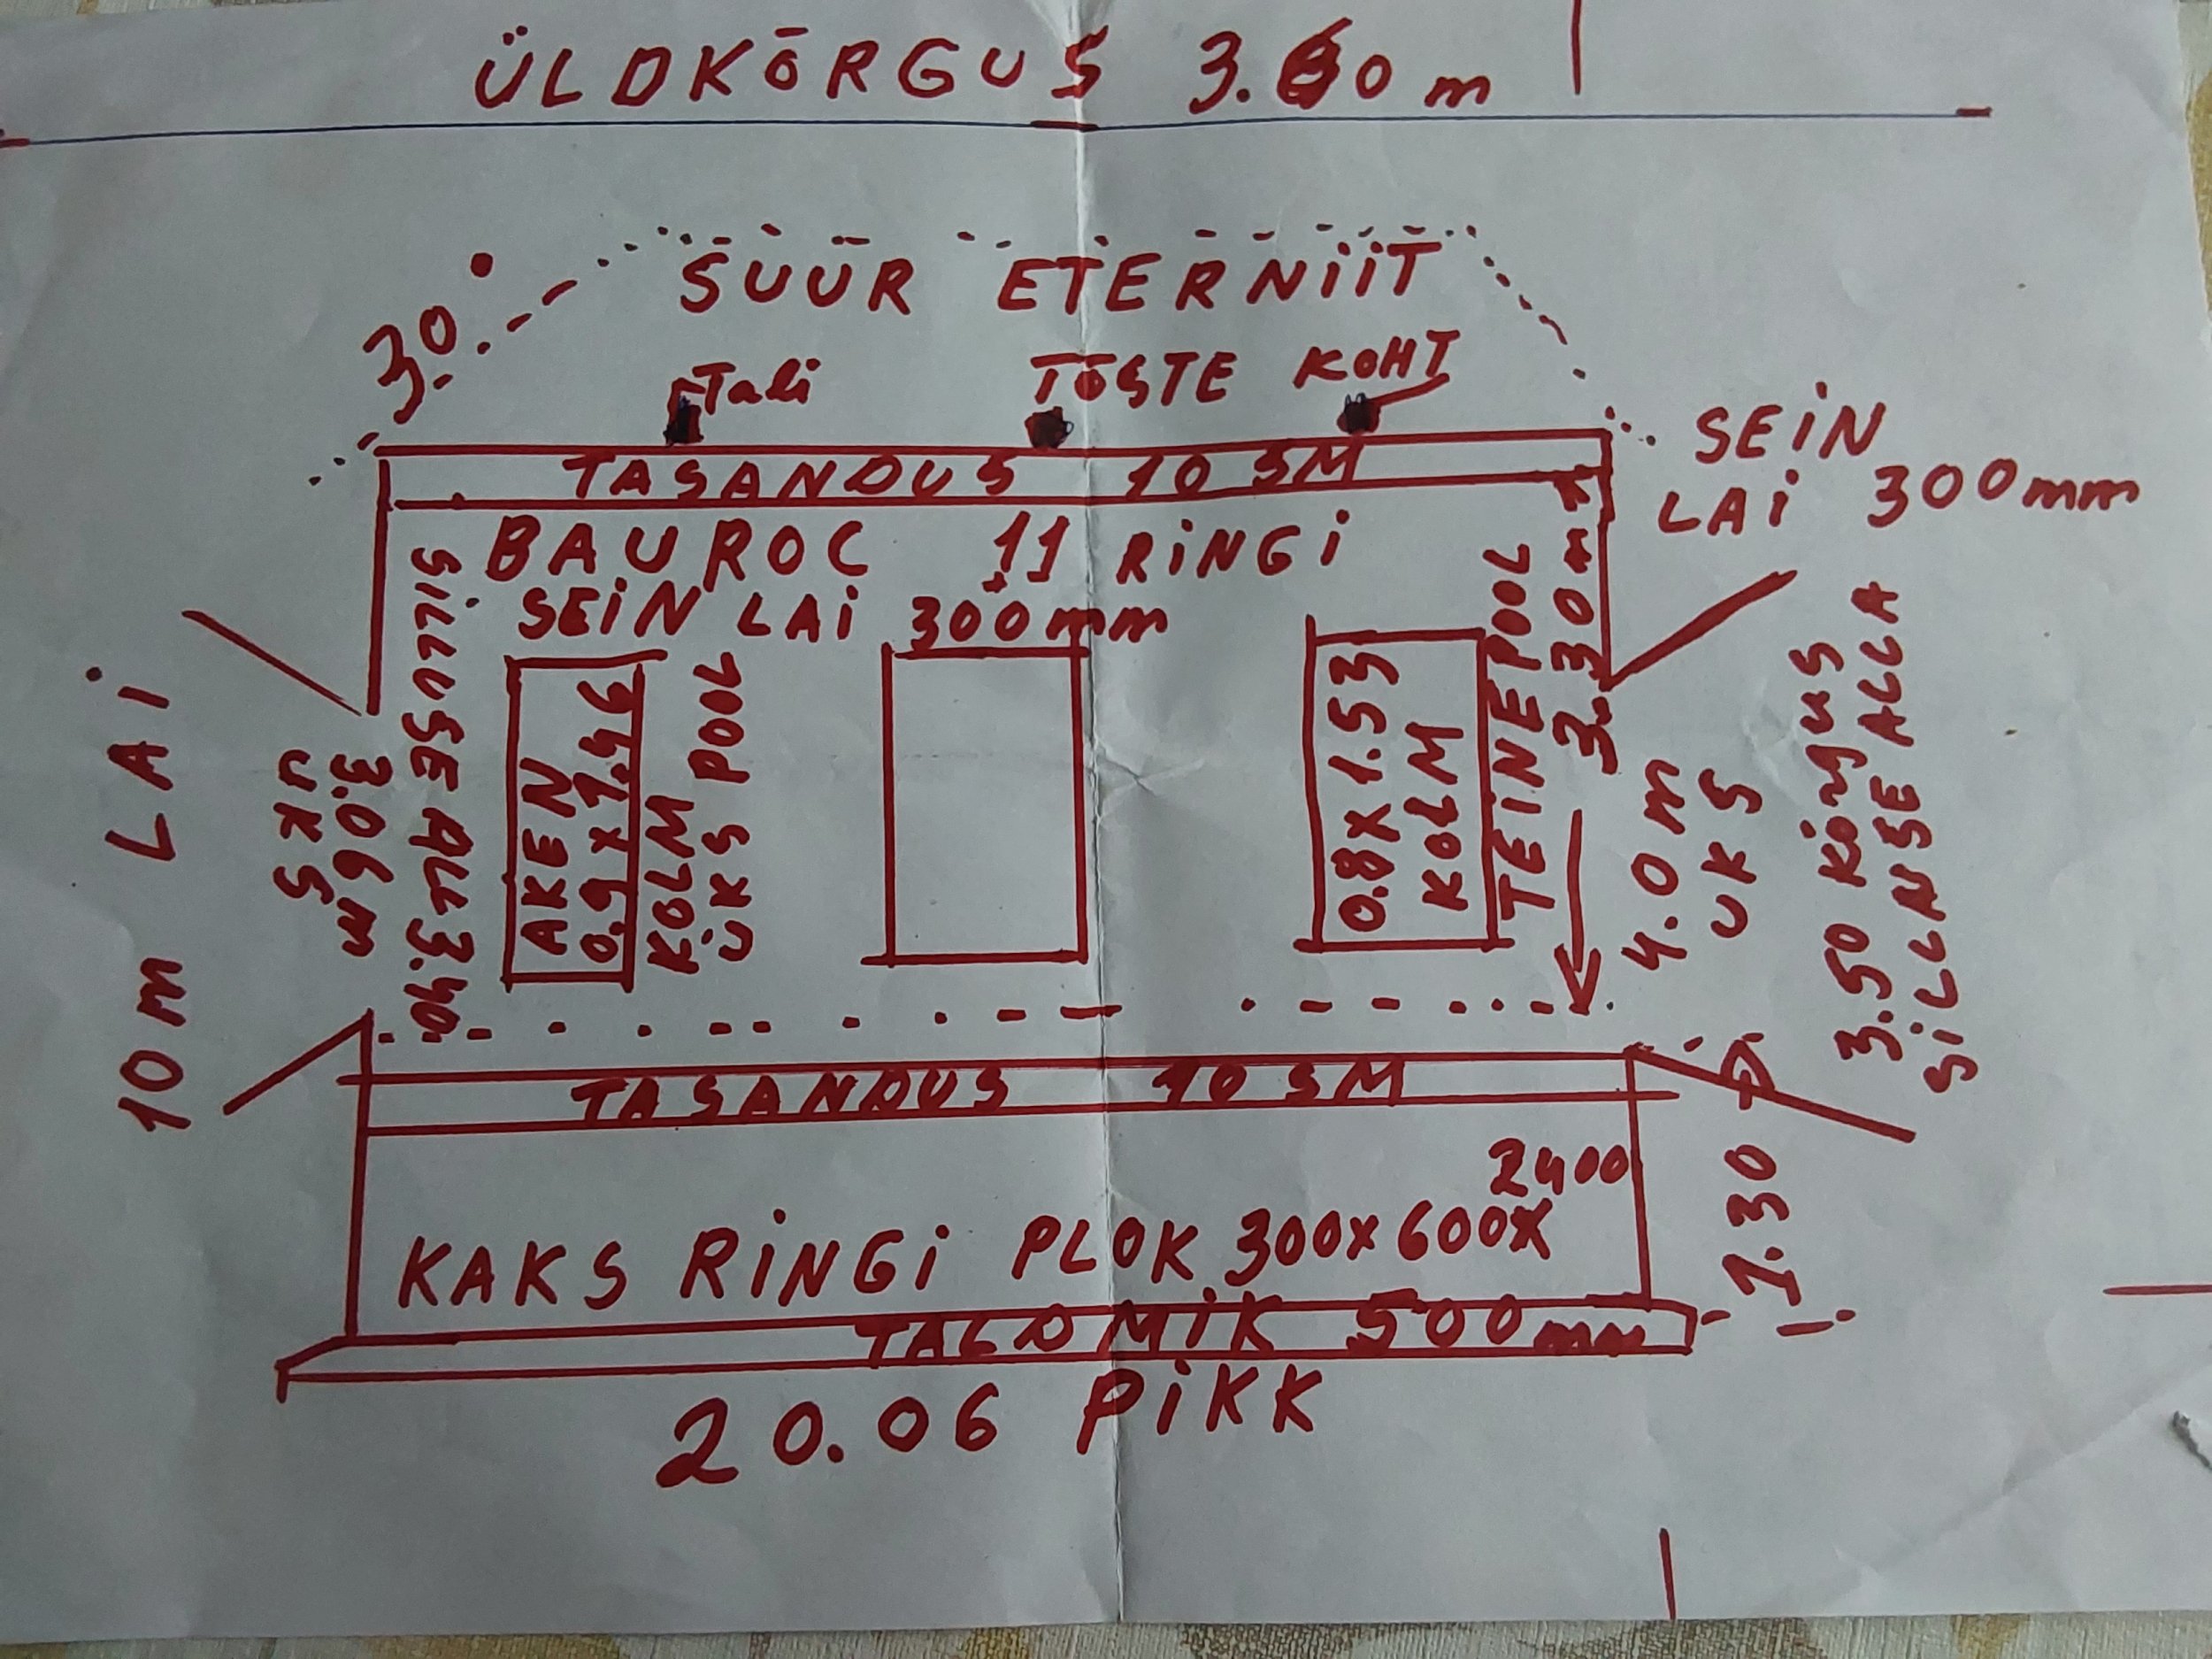 ÜLDKÕRGUS 3.60 m
30°
SUUR ETERNIIT
Tali
TÕSTE KOHT
TASANDUS 10 SM
SEIN
LAI 300mm
BAUROC 11 RINGI
SEIN LAI 300mm
10 m LAI
UKS
3.06m
SILLUSE ALL 3.40
AKEN
0.9 x 1.46
KOLM
ÜKS POOL
0.8 x 1.53
KOLM
TEINE POOL
3.30m
4.0 m
UKS
3.50 Kõrgus
SILLNSE ALLA
TASANDUS 10 SM
2400
KAKS RINGI PLOK 300x600x
1.30
TALDMIK 500mm
20.06 PIKK